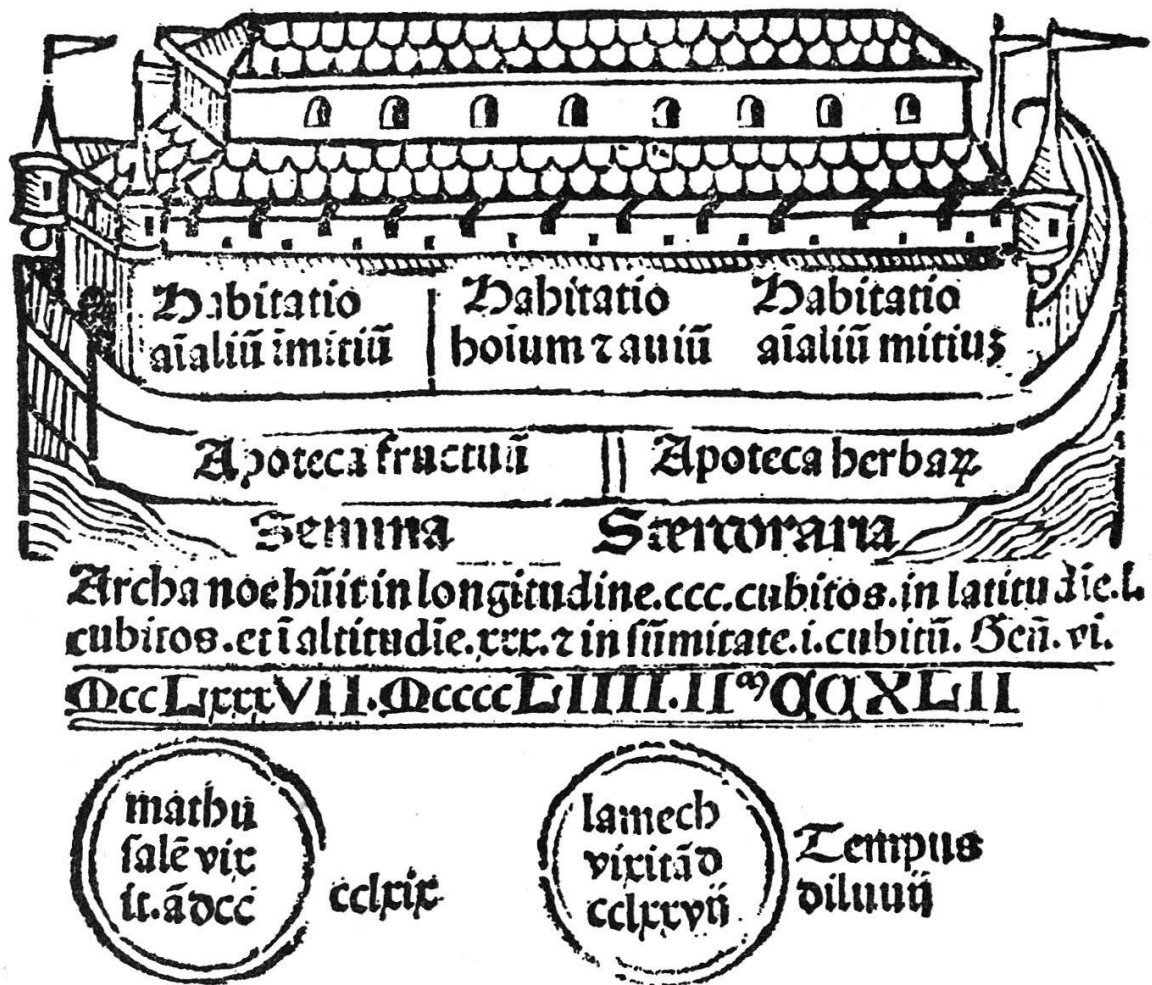 Habitatio
aīaliū īmitiū
Habitatio
hoium ⁊ auiū
Habitatio
aīaliū mitiuꝫ
Apoteca fructuū
Apoteca herbaꝝ
Semina
Stercoraria
Archa noe hūit in longitudine.ccc.cubitos.in latitudīe.L
cubitos.et ī altitudīe.xxx.⁊ in sūmitate.i.cubitū. Gen̄.vi.
MccLxxxVII.MccccLIIII.IIᵐ CCXLII
mathu
salē vix
it.ādcc
cclxix
lamech
vixitād
cclxxvii
Tempus
diluuij